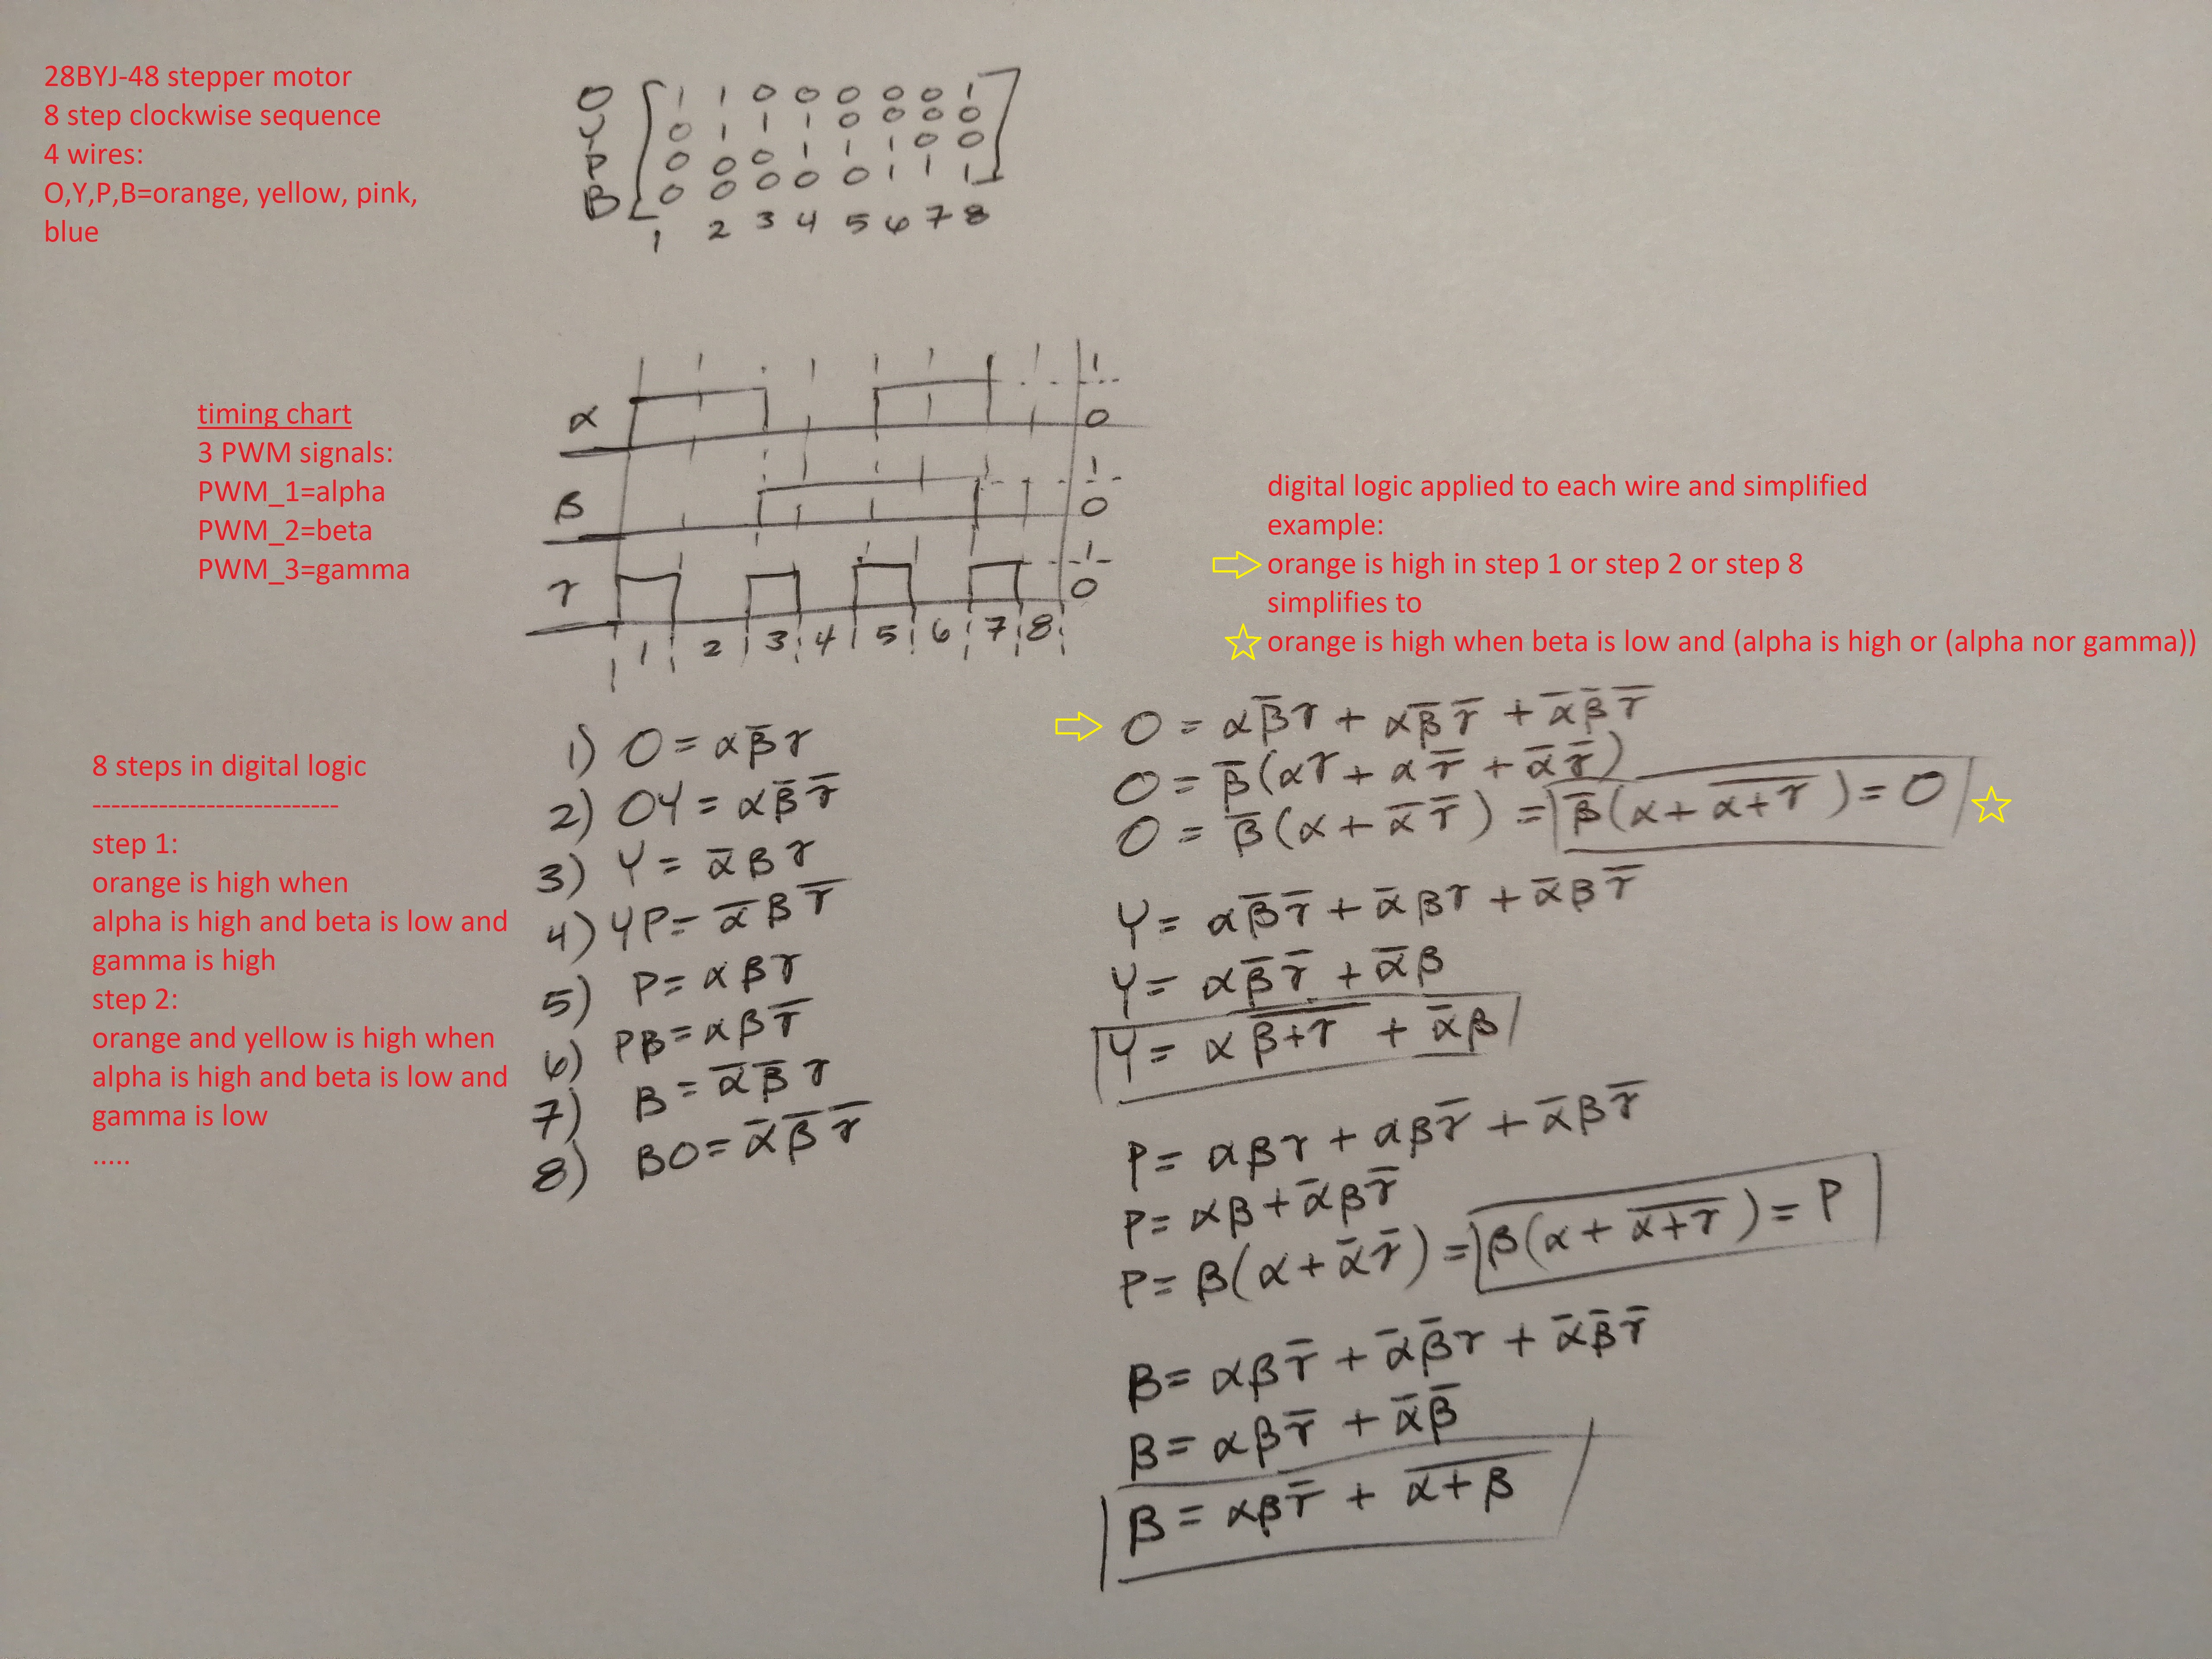 28BYJ-48 stepper motor
8 step clockwise sequence
4 wires:
O,Y,P,B=orange, yellow, pink,
blue
O 1 1 0 0 0 0 0 1
Y 0 1 1 1 0 0 0 0
P 0 0 0 1 1 1 0 0
B 0 0 0 0 0 1 1 1
1 2 3 4 5 6 7 8
timing chart
3 PWM signals:
PWM_1=alpha
PWM_2=beta
PWM_3=gamma
α 1
0
β 1
0
γ 1
0
1 2 3 4 5 6 7 8
digital logic applied to each wire and simplified
example:
orange is high in step 1 or step 2 or step 8
simplifies to
orange is high when beta is low and (alpha is high or (alpha nor gamma))
8 steps in digital logic
--------------------------
step 1:
orange is high when
alpha is high and beta is low and
gamma is high
step 2:
orange and yellow is high when
alpha is high and beta is low and
gamma is low
.....
1) O = αβ̅γ
2) OY = αβ̅γ̅
3) Y = α̅βγ
4) YP = α̅βγ̅
5) P = αβγ
6) PB = αβγ̅
7) B = α̅β̅γ
8) BO = α̅β̅γ̅
O = αβ̅γ + αβ̅γ̅ + α̅β̅γ̅
O = β̅(αγ + αγ̅ + α̅γ̅)
O = β̅(α + α̅γ̅) = β̅(α + α̅+̅γ̅) = O
Y = αβ̅γ̅ + α̅βγ + α̅βγ̅
Y = αβ̅γ̅ + α̅β
Y = α β̅+̅γ̅ + α̅β
P = αβγ + αβγ̅ + α̅βγ̅
P = αβ + α̅βγ̅
P = β(α + α̅γ̅) = β(α + α̅+̅γ̅) = P
B = αβγ̅ + α̅β̅γ + α̅β̅γ̅
B = αβγ̅ + α̅β̅
B = αβγ̅ + α̅+̅β̅